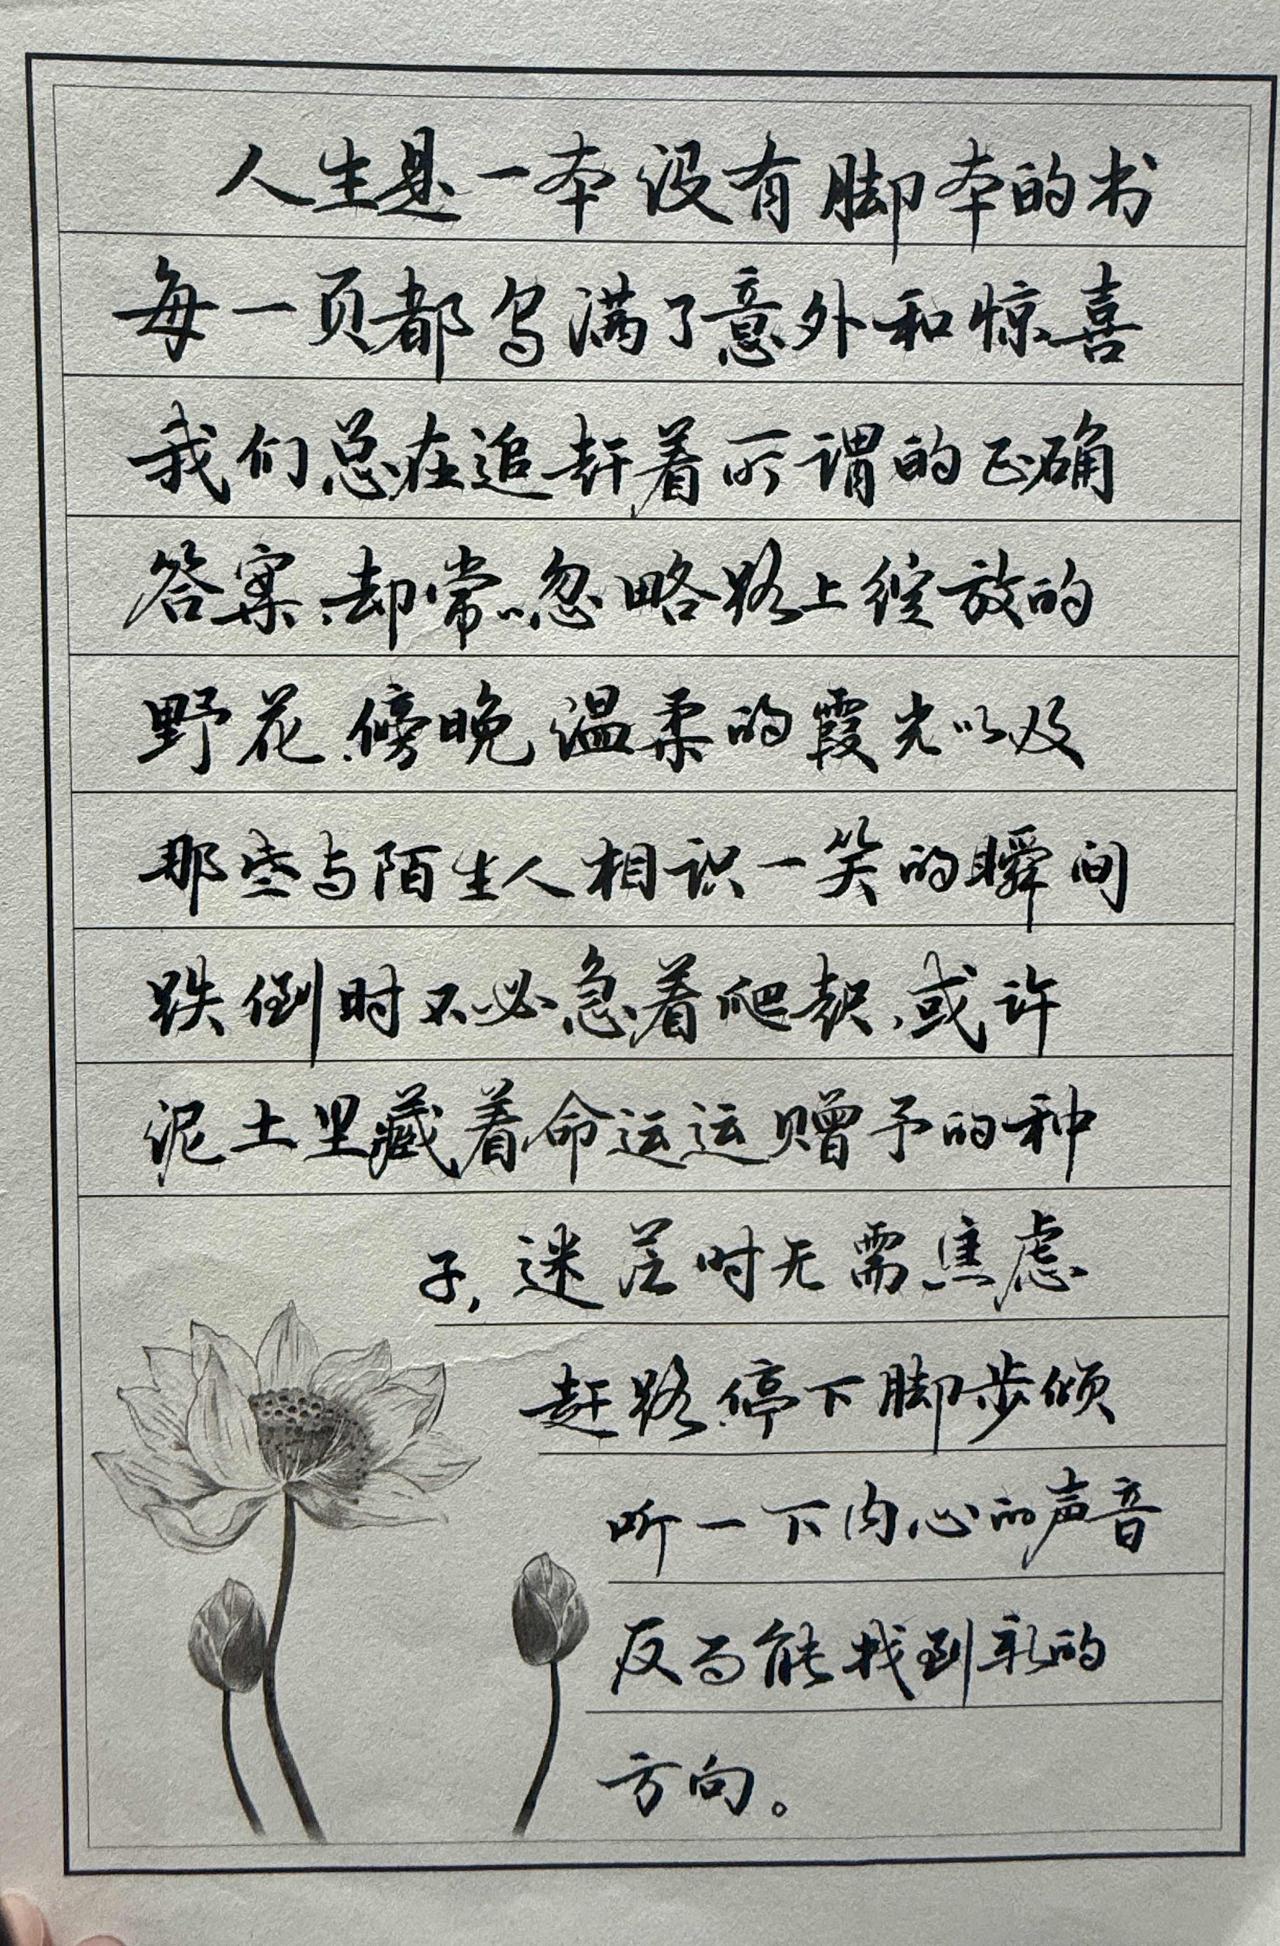 人生是一本没有脚本的书
每一页都写满了意外和惊喜
我们总在追赶着所谓的正确
答案、却常忽略路上绽放的
野花、傍晚温柔的霞光以及
那些与陌生人相识一笑的瞬间
跌倒时不必急着爬起、或许
泥土里藏着命运运赠予的种
子,迷茫时无需焦虑
赶路停下脚步倾
听一下内心的声音
反而能找到新的
方向。